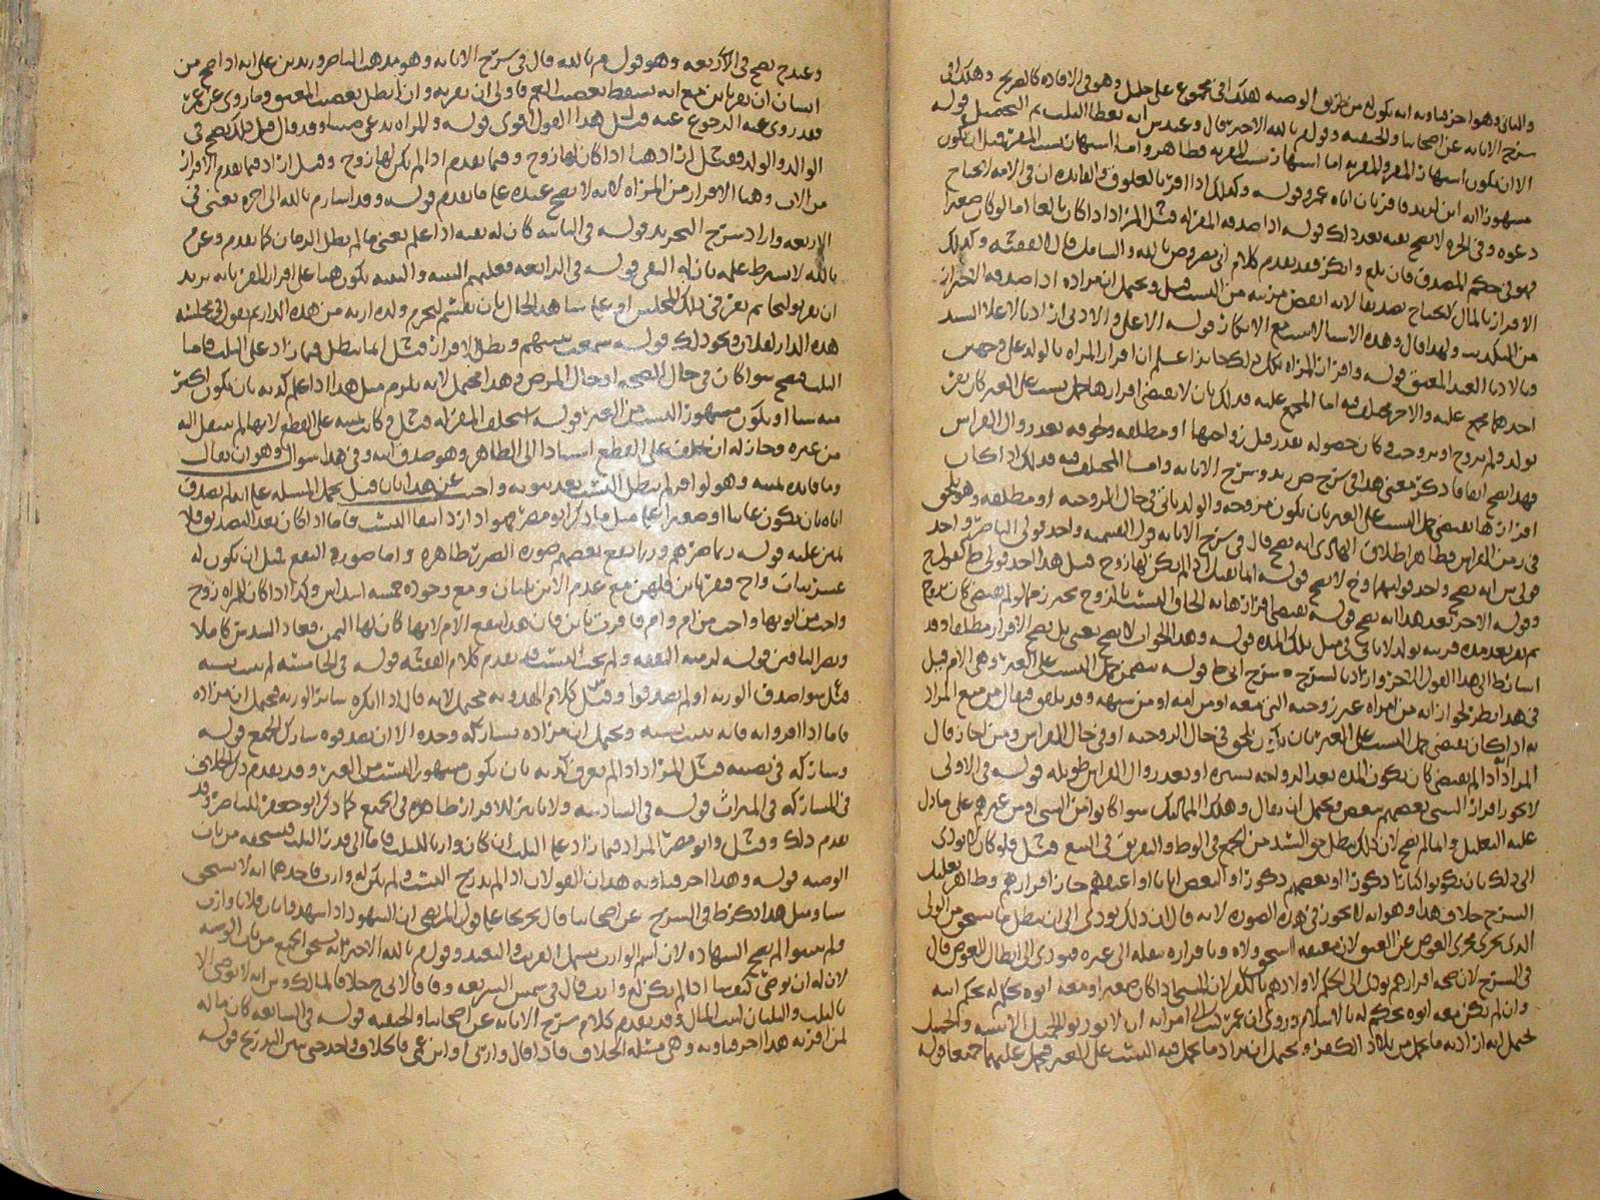 والثاني وهو احرفاويه انه يكون له من طريق الوصيه هلك في مجموع علي خليل وهو في الافاده كالصريح وهلك في
سرح الابانه عن اصحابنا والحنفيه وقول م بالله الاخير قال وعند س انه يعطا الثلث ثم التحصيل قوله
الا ان يكون اشتهار المقر والمقر به اما اشتهار نسب المقر به فظاهر واما اشتهار نسب المقر فقيل يكون
مشهورا انه ابن لزيد فاقر بان اباه عمرو قوله وكذلك اذا اقر بالعلوق والفايده ان في الامه لا تحتاج
دعوه وفي الحره لا يصح نفيه بعد ذلك قوله اذا صدقه المقر له قيل المراد اذا كان بالغا اما لو كان صغيرا
فهو في حكم المصدق فان بلغ وانكر فقد تقدم كلام ابي مضر وص بالله والسامل قال الفقيه وكذلك
الاقرار بالمال لا يحتاج تصديقا لانه انقص مزيه من النسب قيل ويحتمل ان مراده اذا صدقه الاحتراز
من التكذيب ولهذا قال وهذه الاسيا لا تسمع الا انكار قوله الاعلى والادنى اراد بالاعلا السيد
وبالادنا العبد المعتق قوله واقرار المراه بكل ذلك جايز اعلم ان اقرار المراه بالولد على وجهين
احدهما مجمع عليه والاخر مختلف فيه اما المجمع عليه فذلك بان لا يقتضي اقرارها حمل نسب على الغير كان تقر
بولد ولم يتزوج او تزوجت وكان حصوله بعد قبل زواجها او مطلقه ولحوقه بعد زوال الفراش
فهذا يصح اتفاقا ذكر معنى هذا في شرح ص زيد وشرح الابانه واما المختلف فيه فذلك اذا كان
اقرارها يقتضي حمل النسب على الغير بان يكون مزوجه والولد ياتي في حال الزوجيه او مطلقه وهو يلحق
في زمن الفراش فظاهر اطلاق الهادي انه يصح قال في شرح الابانه قول القسميه واحد قولي الناصر واحد
قولي س انه يصح واحد قوليهما وح لا يصح قوله انما يقبل اذا لم يكن لها زوج قيل هذا احد قولي ط كقول ح
وقوله الاخر بعد هذا انه يصح قوله فيقتضي اقرارها به الحاق النسب بالزوج يحترز مما لو لم يقتض كان تزوج
ثم تقر بعد مده قريبه بولد لا ياتي في مثل تلك المده قوله وهذا الجواب لا يصح يعني بل يصح الاقرار مطلقا وقد
اسار ط الى هذا القول الاخر واراد بالشرح شرح ابي ط قوله يتضمن حمل النسب على الغير وهي الام قيل
في هذا نظر لجواز انه من امراه غير زوجته التي معه او من امه او من شبهه وقد يلحق فيقال من منع المراد
به اذا كان يقتضي حمل النسب على الغير بان يكون يلحق في حال الزوجيه او في حال الفراش ومن اجاز قال
المراد اذا لم يقتض كان يكون المده بعد الزواجه يسيره او بعد زوال الفراش طويله قوله في الاولى
لا يجوز اقرار السبي بعضهم ببعض ويحتمل ان يقال وهلك المماليك سوا كانوا من السبي او من غيرهم على ما دل
عليه التعليل وانما لم يصح لان ذلك يبطل حق السيد من الجمع في الوطء والتفريق في البيع قيل فلو كان لا يؤدي
الى ذلك بان يكونوا كبارا ذكورا او بعضهم ذكورا او البعض اناثا او اعتقهم جاز اقرارهم وظاهر تعليل
الشرح خلاف هذا وهو انه لا يجوز في هذه الصوره لانه قال لان ذلك يودي الى ان يبطل ما يستحق من الولى
الذي يجري مجرى العوض عن العتق لان معتقه استحق ولاه وباقراره ينقله الى غيره فيودي الى ابطال العوض قال
في الشرح لان صحه اقرارهم يودي الى الحكم لاولادهم بالكفر لان المسبي اذا كان صغيرا ومعه ابوه يحكم له بحكم ابيه
وان لم يكن معه ابوه يحكم له بالاسلام وروي ان عمر كتب الى امرايه ان لا يورثوا الحميل الا ببينه والحميل
يحتمل انه اراد به ما حمل من بلاد الكفر ويحتمل ان يراد ما يحمل فيه النسب على الغير فحمل عليهما جميعا قوله
وعند ح يصح في الاربعه وهو قول م بالله قال في شرح الابانه وهو مذهب الناصر وزيد بن علي انه اذا صح من
انسان ان يقر بابن مع انه يسقط بعصب العم فاولى ان يقر به وان ابطل بعصب المعتق وما روي عن عمر
فقد روي عنه الرجوع عنه قيل هذا القول اقوى قوله والمراه تدعي صبيا وقد قال قيل هلك يصح في
الوالد والولد فقيل اراد هنا اذا كان لها زوج وفيما تقدم اذا لم يكن لها زوج وقيل اراد فيما تقدم الاقرار
من الاب وهنا الاقرار من المراه لانه لا يصح عنده على ما تقدم قوله وقد اسار م بالله الى اخره يعني في
الاربعه واراد بشرح التحرير قوله في الثانيه كان له نفيه اذا علم يعني ما لم يطل الزمان كما تقدم وعن م
بالله لا يشترط علمه بان له النفي قوله في الرابعه فعليهم البينه والبينه يكون هنا على اقرار المقر بانه يريد
ان يقر تولجا ثم يقر في ذلك المجلس او على شاهد الحال بان يقسم ليحرم ولده ارثه من هذه الدار ثم يقول في مجلسه
هذه الدار لفلان ونحو ذلك قوله سمعت بينتهم وبطل الاقرار قيل انما يبطل فيما زاد على الثلث فاما
الثلث فيصح سوا كان في حال الصحه او حال المرض وهذا محتمل لانه يلزم مثل هذا اذا علم كذبه بان يكون اكبر
منه سنا او يكون مشهور النسب من الغير قوله استحلف المقر له قيل وكانت يمينه على القطع لانها لم تنتقل اليه
من غيره وجاز له ان يحلف على القطع استنادا الى الظاهر وهو صدق ابيه وفي هذا سوال وهو ان يقال
وما فايده يمينه وهو لو اقر لم يبطل النسب بعد ثبوته واجيب عن هذا بان قيل تحمل المسله على انه لم يصدق
اباه بان يكون غايبا او صغيرا على مثل ما ذكر ابو مضر هو اراد ايضا النسب فاما اذا كان بعد التصديق فلا
يمين عليه قوله ربما ضرهم وربما نفع بعضهم صوره الضرر ظاهره واما صوره النفع مثل ان يكون له
عشر بنات واخ فيقر بابن فلهن مع عدم الابن ثلثان ومع وجوده خمسه اسداس وكذا اذا كان للمراه زوج
واخت من ابويها واخت من ام وام فاقرت بابن فان هذا ينفع الام لانها كان لها الثمن فعاد السدس كاملا
ويضر الباقين قوله لزمته النفقه ولم يثبت النسب قد تقدم كلام الفقيه قوله في الخامسه لم يثبت نسبه
قيل سوا صدق الورثه او لم يصدقوا وقيل كلام الهدويه محتمل لانه قال اذا انكره ساير الورثه فيحتمل ان مراده
فاما اذا اقروا به فانه يثبت نسبه ويحتمل ان مراده يشاركه وحده الا ان يصدقوه شارك الجميع قوله
وشاركه في نصيبه قيل المراد اذا لم يعرف كذبه بان يكون مشهور النسب من الغير وقد تقدم ذكر الخلاف
في المشاركه في الميراث قوله في السادسه ولا تاثير للاقرار ظاهره في الجميع كما ذكر ابو جعفر للناصر وقد
تقدم ذلك وقيل وابو مضر المراد فيما زاد على الثلث ان كان وارثا للثلث فاما الى قدر الثلث فيستحقه من باب
الوصيه قوله وهذا احرفاويه هذان القولان اذا لم يدرج النسب ولم يكن له وارث فاحدهما انه لا يستحق
شيا ومثل هذا ذكر ط في الشرح عن اصحابنا قال تخريجا على قول المرتضى ان الشهود اذا شهدوا بان فلانا وارث
فلم يبينوا لم يصح الشهاده لان اسم الوارث يشمل القريب والبعيد وقول م بالله الاخير انه يستحق الجميع من باب الوصيه
لان له ان يوصي كيف شا اذا لم يكن له وارث قال في شمس الشريعه وفاقا لابي ح خلافا لمالك وس انه لا يوصي الا
بالثلث والثلثان لبيت المال وقد تقدم كلام شرح الابانه عن اصحابنا والحنفيه قوله في السابعه كان ماله
لمن اقر به هذا احرفاويه وهي مسله الخلاف فاذا قال وارثي او ابن عمي فالخلاف واحد حتى يبين التدريج قوله